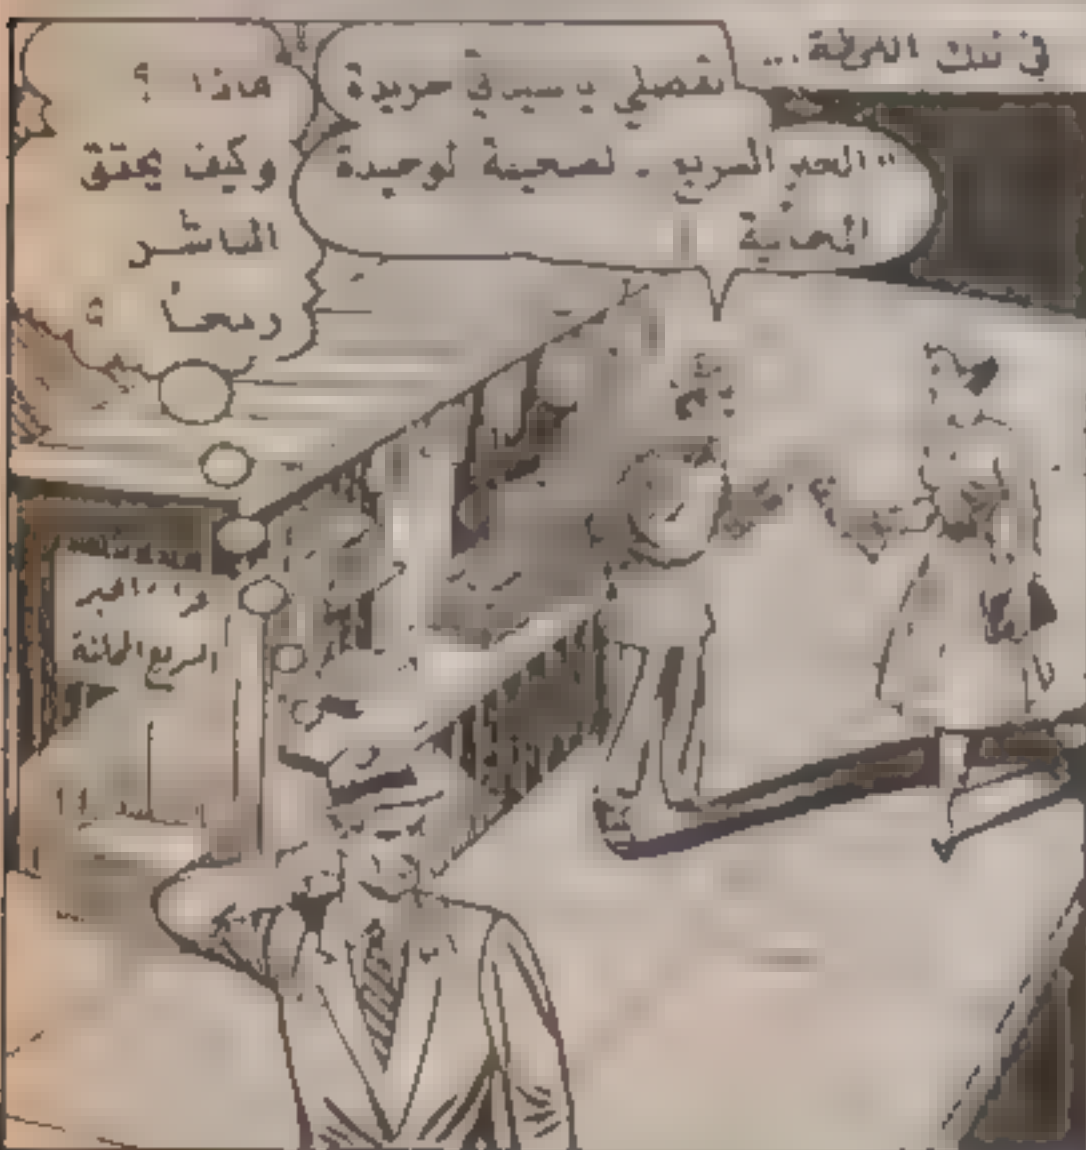 في تلك الغرفة ...
تفضلي يا سيدتي جريدة
"الخبر السريع - الصحيفة الوحيدة
المجانية !
ماذا ؟
وكيف يحقق
الناشر
ربحاً ؟
الخبر
السريع المجانية